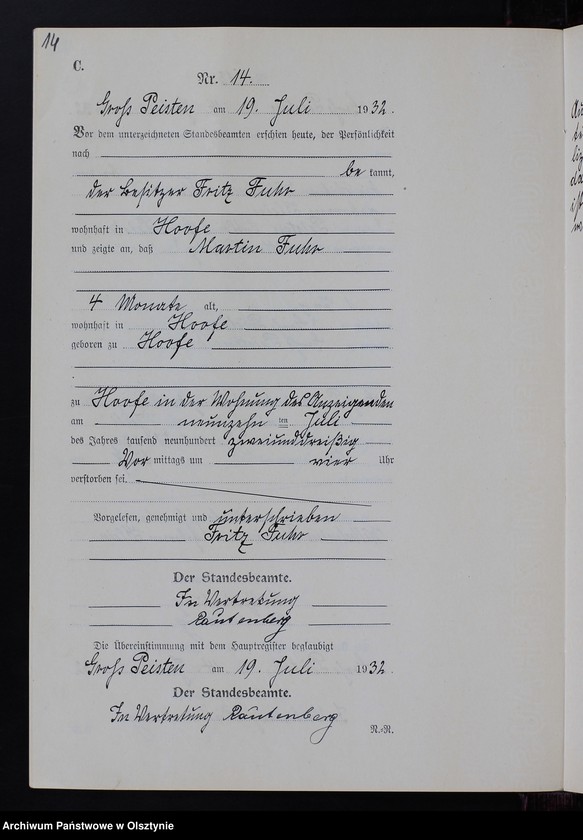 14
C.
Nr. 14.
Gross Peisten am 19. Juli 1932.
Vor dem unterzeichneten Standesbeamten erschien heute, der Persönlichkeit
nach
be kannt,
der Besitzer Fritz Fuhr
wohnhaft in Hoofe
und zeigte an, daß Martin Fuhr
4 Monate alt,
wohnhaft in Hoofe
geboren zu Hoofe
zu Hoofe in der Wohnung des Anzeigenden
am neunzehn ten Juli
des Jahres tausend neunhundert zweiunddreißig
Vor mittags um vier Uhr
verstorben sei.
Vorgelesen, genehmigt und unterschrieben
Fritz Fuhr
Der Standesbeamte.
In Vertretung
Rautenberg
Die Übereinstimmung mit dem Hauptregister beglaubigt
Gross Peisten am 19. Juli 1932.
Der Standesbeamte.
In Vertretung Rautenberg
R.-R.
Archiwum Państwowe w Olsztynie